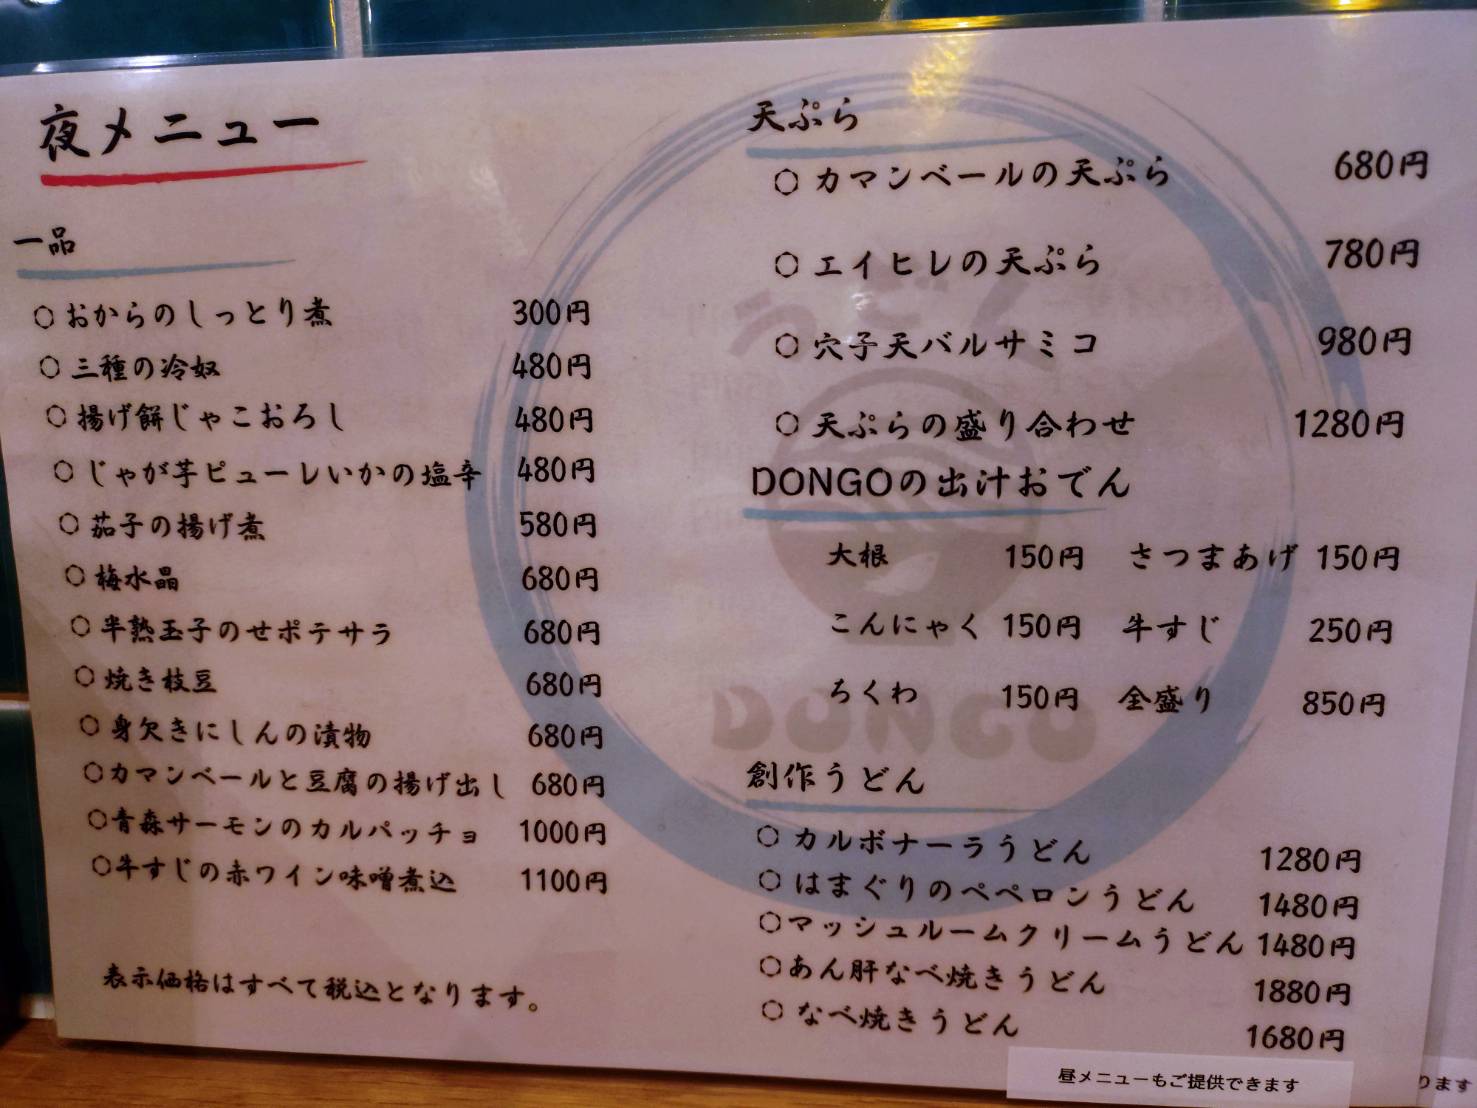 夜メニュー
一品
○おからのしっとり煮 300円
○三種の冷奴 480円
○揚げ餅じゃこおろし 480円
○じゃが芋ピューレいかの塩辛 480円
○茄子の揚げ煮 580円
○梅水晶 680円
○半熟玉子のせポテサラ 680円
○焼き枝豆 680円
○身欠きにしんの漬物 680円
○カマンベールと豆腐の揚げ出し 680円
○青森サーモンのカルパッチョ 1000円
○牛すじの赤ワイン味噌煮込 1100円
表示価格はすべて税込となります。
天ぷら
○カマンベールの天ぷら 680円
○エイヒレの天ぷら 780円
○穴子天バルサミコ 980円
○天ぷらの盛り合わせ 1280円
DONGOの出汁おでん
大根 150円 さつまあげ 150円
こんにゃく 150円 牛すじ 250円
ちくわ 150円 全盛り 850円
創作うどん
○カルボナーラうどん 1280円
○はまぐりのペペロンうどん 1480円
○マッシュルームクリームうどん 1480円
○あん肝なべ焼きうどん 1880円
○なべ焼きうどん 1680円
昼メニューもご提供できます
うどん
DONGO
ります